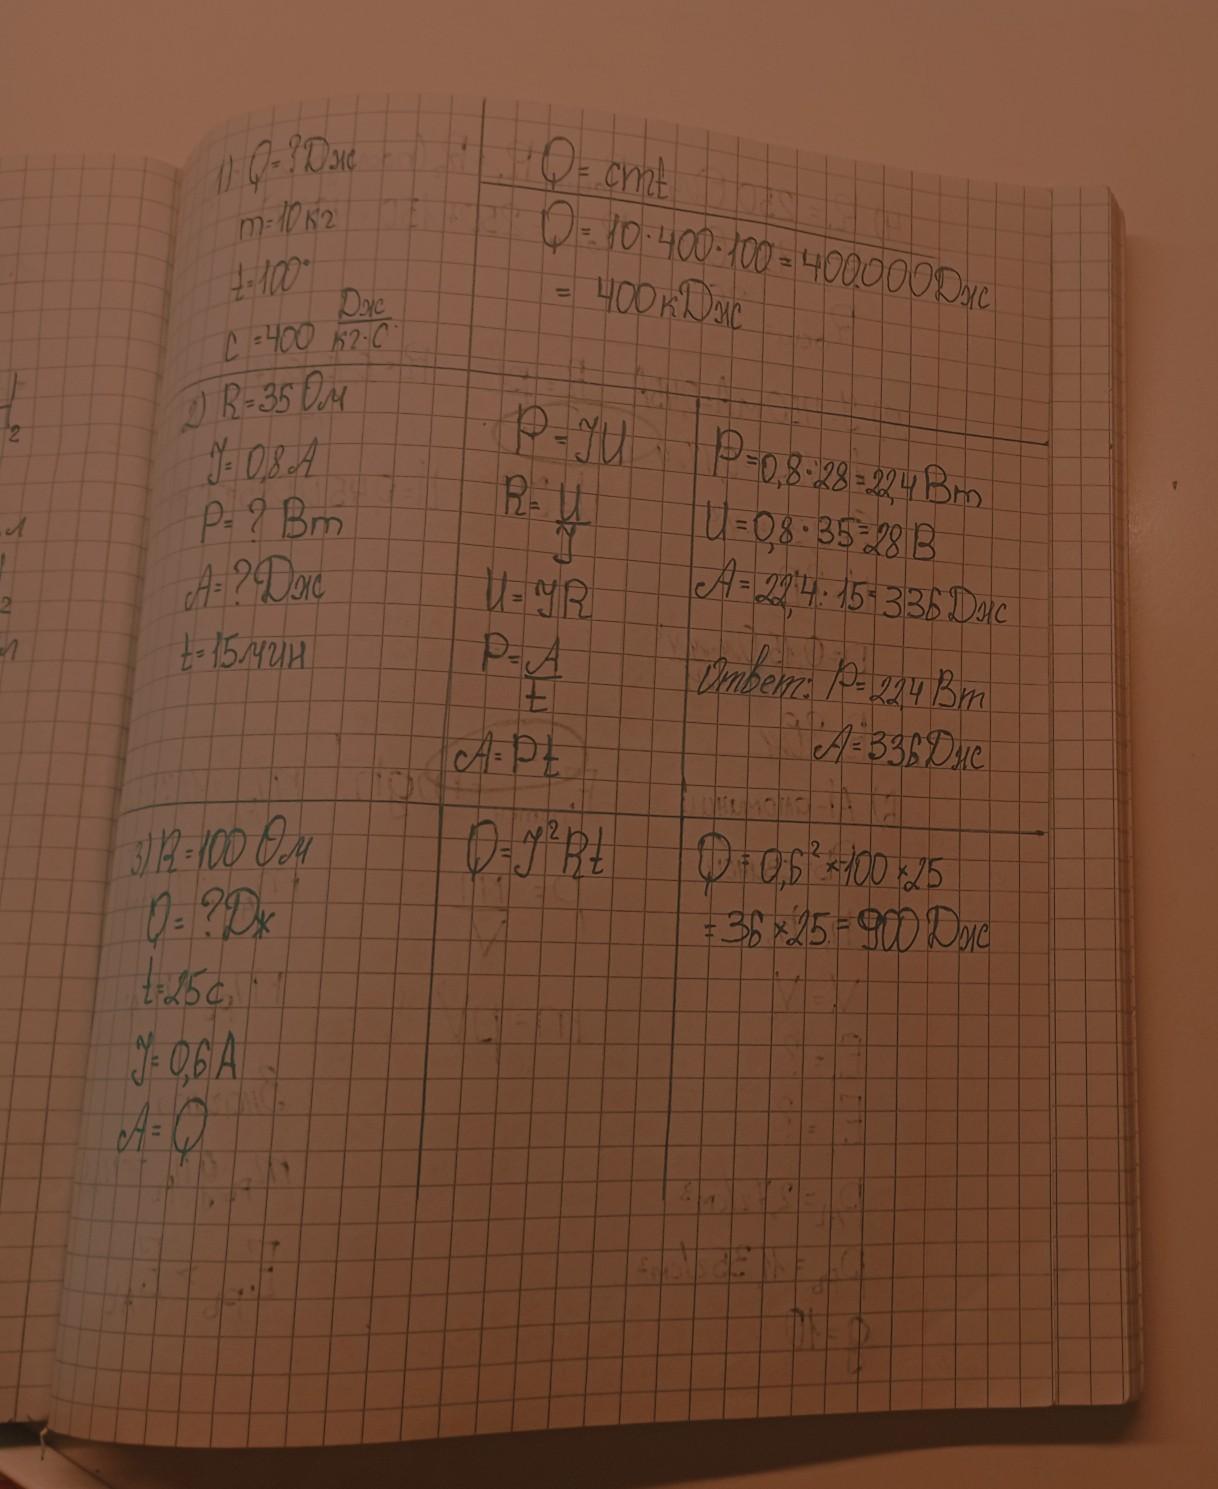 1) Q=?Дж
m=10кг
t=100°
c=400 Дж/кг·C°
Q= cmt
Q= 10·400·100=400.000Дж
= 400кДж
2) R=35Ом
J=0,8A
P=? Вт
A=?Дж
t=15мин
P=JU
R=U/J
U=JR
P=A/t
A=Pt
P=0,8·28=22,4Вт
U=0,8·35=28В
A=22,4·15=336Дж
Ответ: P=22,4Вт
A=336Дж
3) R=100Ом
Q=?Дж
t=25c
J=0,6A
A=Q
Q=J²Rt
Q=0,6²×100×25
=36×25=900Дж